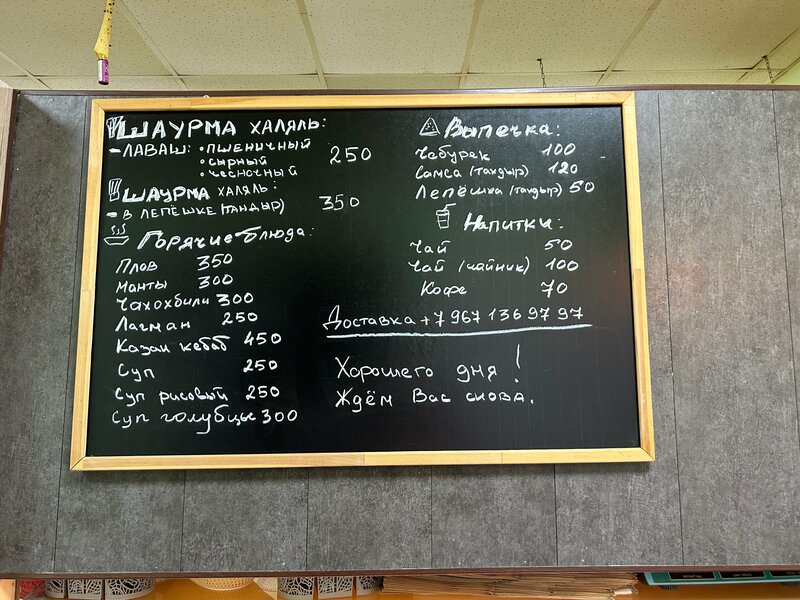 ШАУРМА ХАЛЯЛЬ:
- ЛАВАШ: • ПШЕНИЧНЫЙ
• СЫРНЫЙ 250
• ЧЕСНОЧНЫЙ
ШАУРМА ХАЛЯЛЬ:
- В ЛЕПЁШКЕ (ТАНДЫР) 350
Горячие блюда:
Плов 350
Манты 300
Чахохбили 300
Лагман 250
Казан кебаб 450
Суп 250
Суп рисовый 250
Суп голубцы 300
Выпечка:
Чебурек 100
Самса (тандыр) 120
Лепёшка (тандыр) 50
Напитки:
Чай 50
Чай (чайник) 100
Кофе 70
Доставка +7 967 136 97 97
Хорошего дня!
Ждём Вас снова.